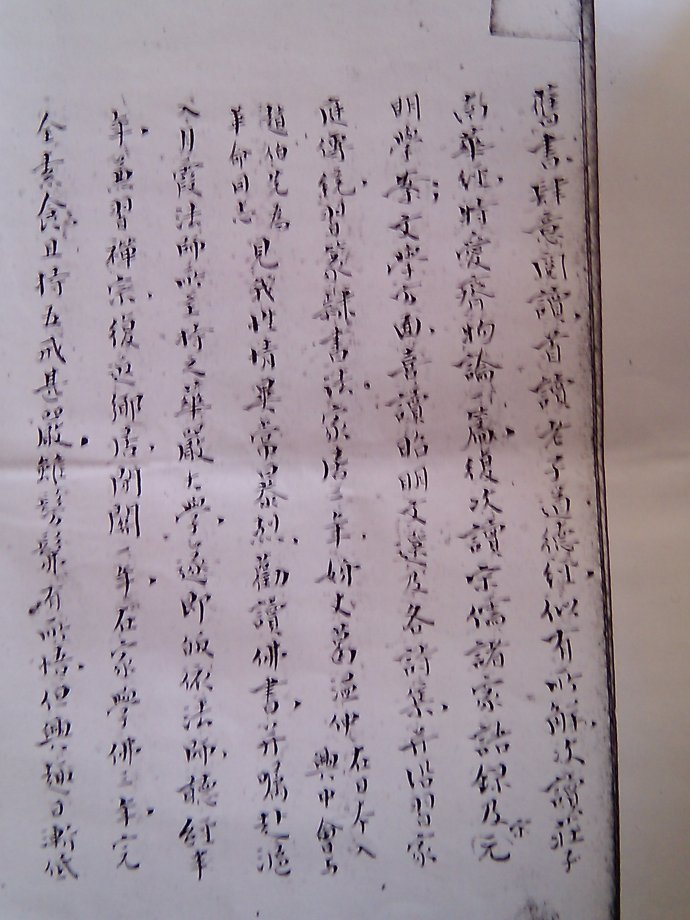 舊書肆意閱讀,首讀老子道德經,似有所解,次讀莊子
南華經,特愛齊物論一篇,復次讀宋儒諸家語錄及宋元
明學案;文學方面,喜讀昭明文選及各詩集,并沿習家
庭傳統,習篆隸書法。家居三年,姊夫葛溫仲在日本入興中會與
趙伯先為革命同志見我性情異常暴烈,勸讀佛書,并囑赴滬
入月霞法師所主持之華嚴大學,遂即皈依法師,聽經半
年,兼習禪宗,復返鄉居,閉關一年,在家學佛三年,完
全素食,且持五戒甚嚴,雖髣髴有所悟,但興趣日漸低